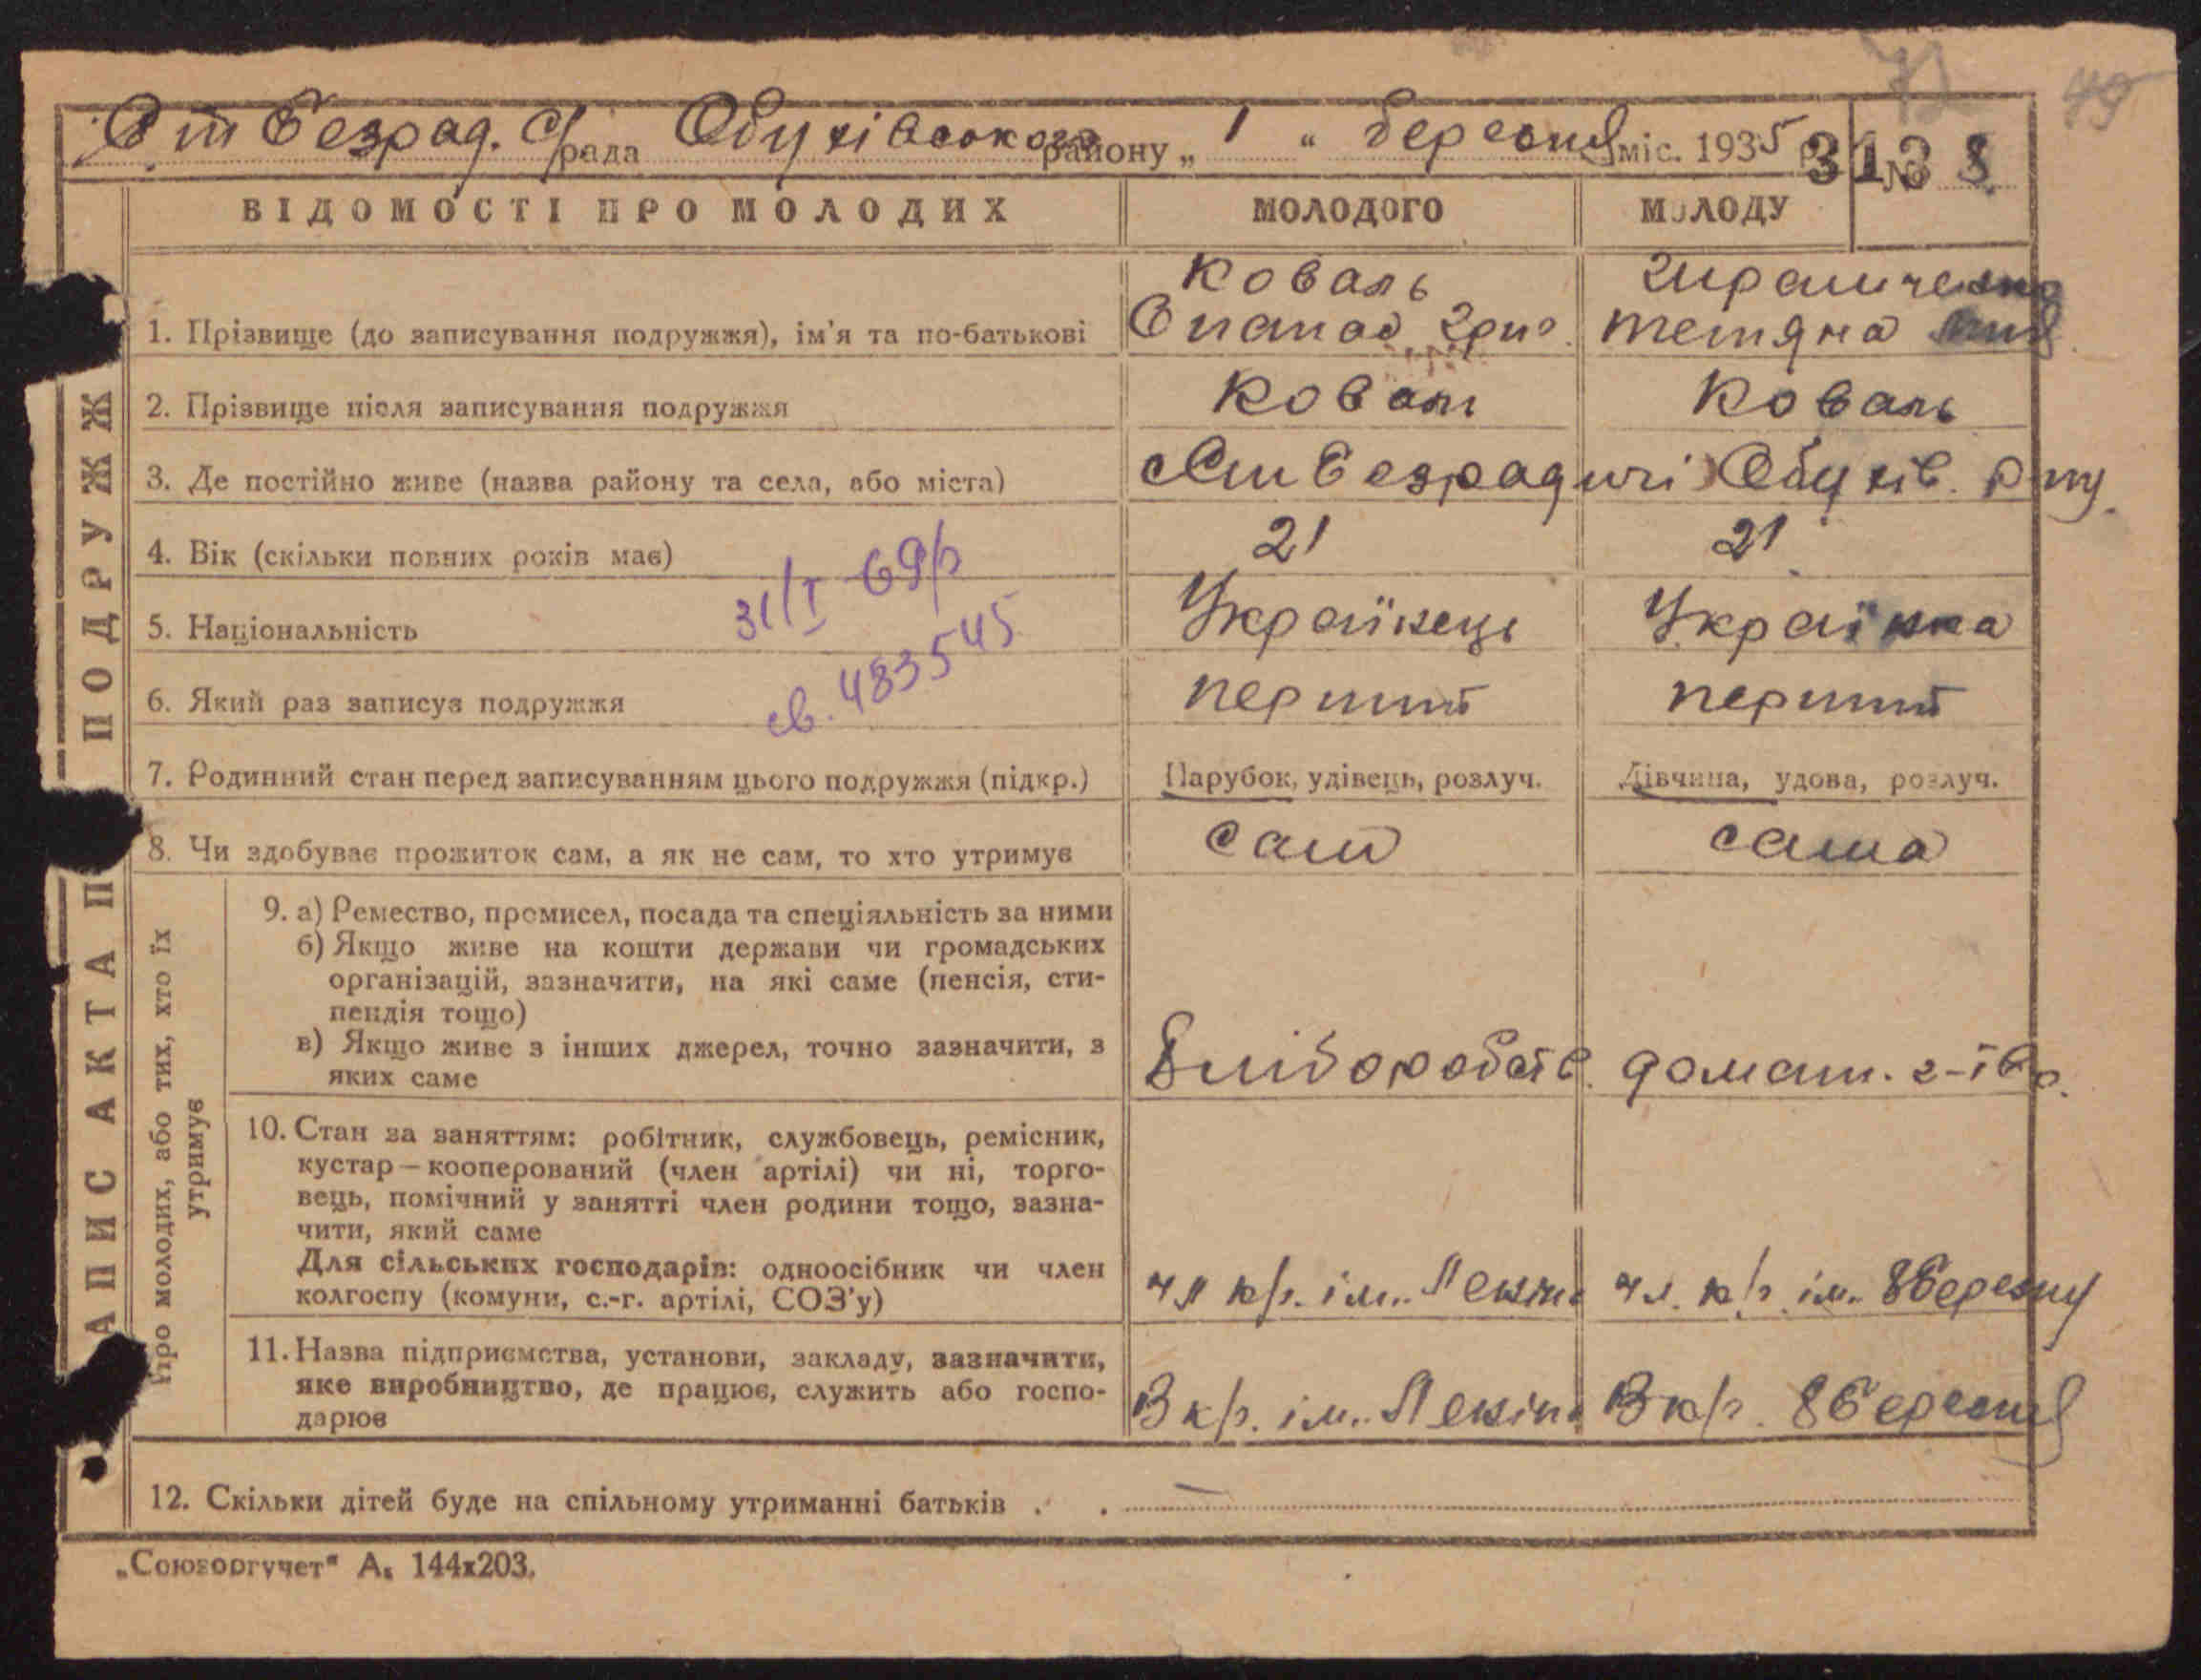 Ст Безрад. С/рада Обухівського району „ 1 “ березня міс. 1935 р. №
3138
ВІДОМОСТІ ПРО МОЛОДИХ МОЛОДОГО МОЛОДУ
Коваль
1. Прізвище (до записування подружжя), ім'я та по-батькові Опанас Григ. Тетяна
2. Прізвище після записування подружжя Коваль Коваль
3. Де постійно живе (назва району та села, або міста) Ст Безрадичі Обухів. р-ну.
4. Вік (скільки повних років має) 21 21
31/I-69р
5. Національність Українець Українка
св. 483545
6. Який раз записує подружжя перший перший
7. Родинний стан перед записуванням цього подружжя (підкр.) Парубок, удівець, розлуч. Дівчина, удова, розлуч.
8. Чи здобуває прожиток сам, а як не сам, то хто утримує сам сама
9. а) Ремество, промисел, посада та спеціяльність за ними
б) Якщо живе на кошти держави чи громадських
організацій, зазначити, на які саме (пенсія, сти-
пендія тощо)
в) Якщо живе з інших джерел, точно зазначити, з
яких саме хлібороб домаш. г-тво.
10. Стан за заняттям: робітник, службовець, ремісник,
кустар — кооперований (член артілі) чи ні, торго-
вець, помічний у занятті член родини тощо, зазна-
чити, який саме
Для сільських господарів: одноосібник чи член
колгоспу (комуни, с.-г. артілі, СОЗ'у) чл к/г. ім. Леніна чл. к/г. ім. 8 Березня
11. Назва підприємства, установи, закладу, зазначити,
яке виробництво, де працює, служить або госпо-
дарює В к/г. ім. Леніна В к/г. 8 березня
12. Скільки дітей буде на спільному утриманні батьків . . —
ЗАПИС АКТА ПРО ПОДРУЖЖ
Про молодих, або тих, хто їх
утримує
„Союзоргучет“ А₅ 144х203.